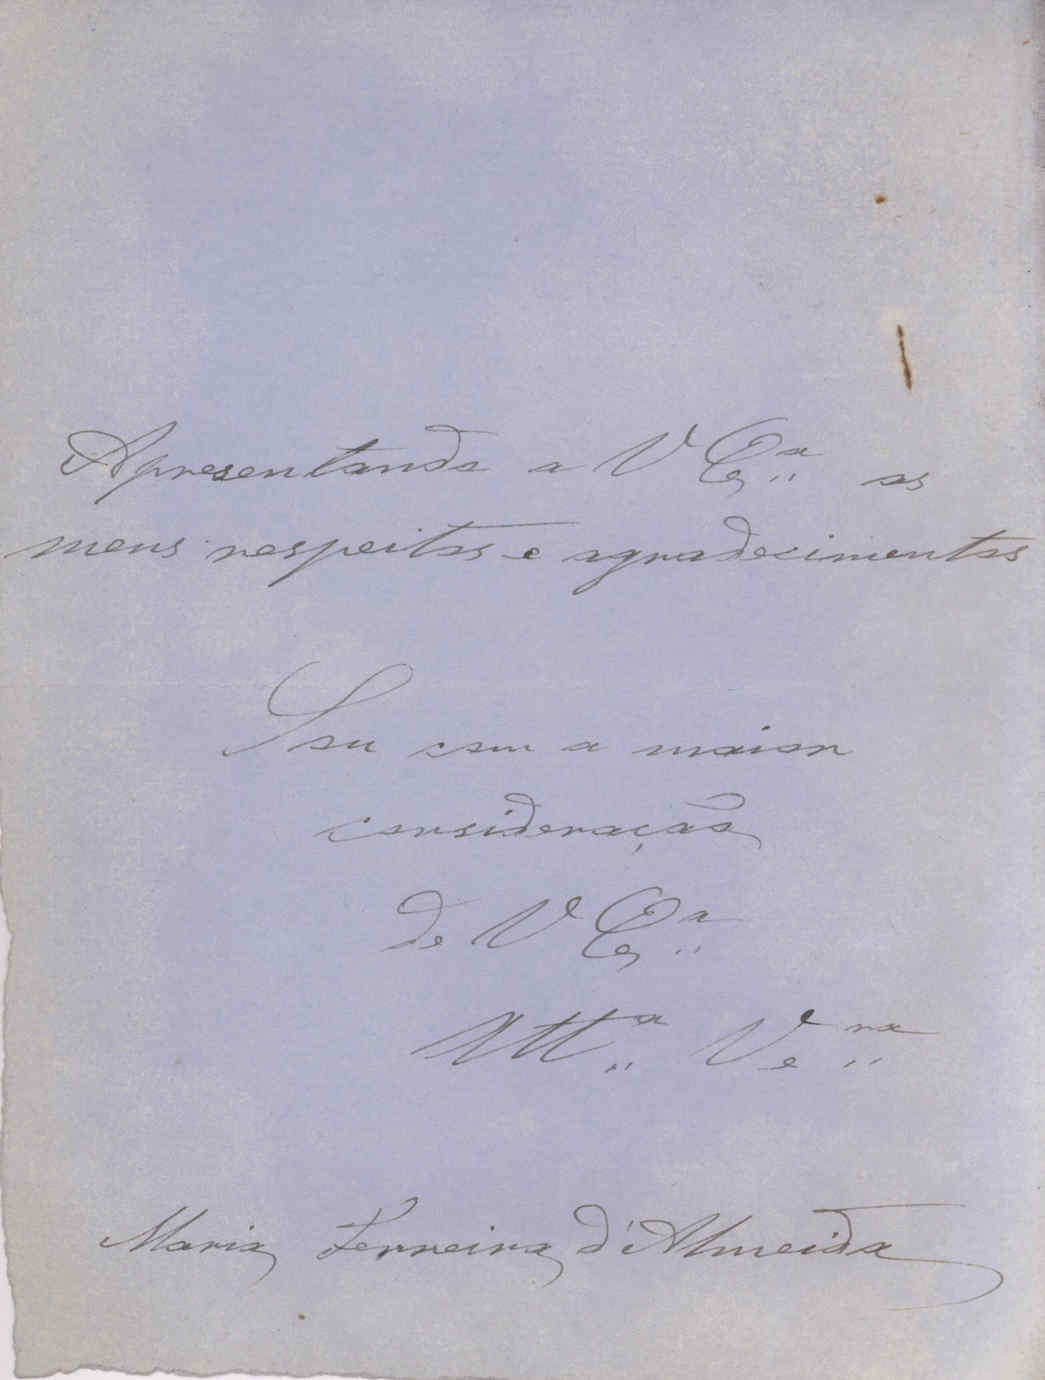 Apresentando a V Exª os
meus respeitos e agradecimentos
Sou com a maior
consideração
de V Exª
Attª Veⁿʳᵃ
Maria Ferreira d'Almeida